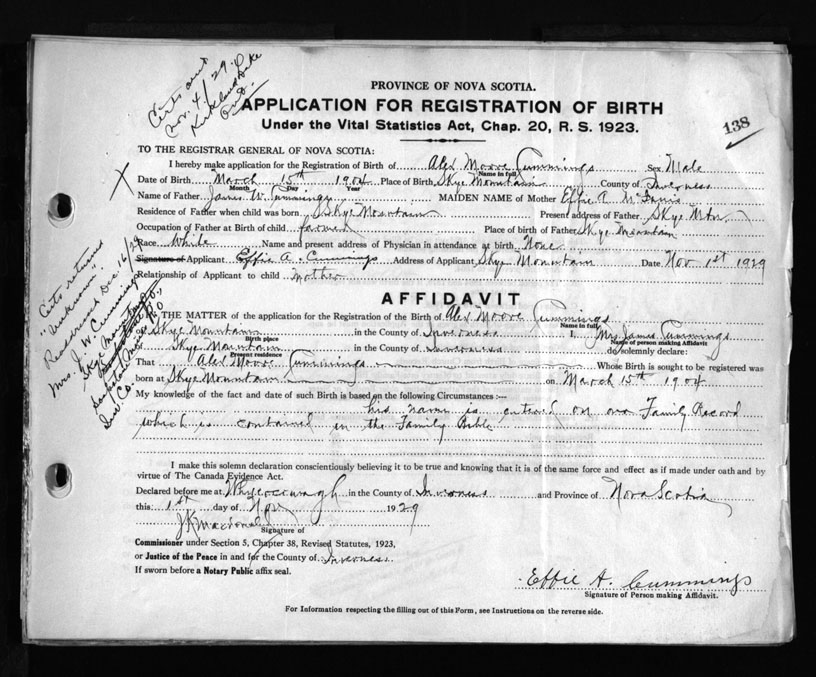 PROVINCE OF NOVA SCOTIA.
APPLICATION FOR REGISTRATION OF BIRTH
Under the Vital Statistics Act, Chap. 20, R. S. 1923.
138
TO THE REGISTRAR GENERAL OF NOVA SCOTIA:
I hereby make application for the Registration of Birth of Alex Moore Cummings Sex Male
Name in full
Date of Birth March 15th 1904 Place of Birth Skye Mountain County of Inverness
Month Day Year
Name of Father James W. Cummings MAIDEN NAME of Mother Effie A
Residence of Father when child was born Skye Mountain Present address of Father Skye Mtn
Occupation of Father at Birth of child farmer Place of birth of Father Skye Mountain
Race White Name and present address of Physician in attendance at birth None
Signature of Applicant Effie A. Cummings Address of Applicant Skye Mountain Date Nov 1st 1929
Relationship of Applicant to child mother
AFFIDAVIT
IN THE MATTER of the application for the Registration of the Birth of Alex Moore Cummings
Name in full
Skye Mountain in the County of Inverness I, Mrs James Cummings
Birth place
Name of person making Affidavit
of Skye Mountain in the County of Inverness do solemnly declare:
Present residence
That Alex Moore Cummings Whose Birth is sought to be registered was
born at Skye Mountain on March 15th 1904
My knowledge of the fact and date of such Birth is based on the following Circumstances :—
his name is entered on our Family Record
which is contained in the Family Bible
I make this solemn declaration conscientiously believing it to be true and knowing that it is of the same force and effect as if made under oath and by
virtue of The Canada Evidence Act.
Declared before me at Whycocomagh in the County of Inverness and Province of Nova Scotia
this 1st day of Nov 1929
Signature of
Commissioner under Section 5, Chapter 38, Revised Statutes, 1923,
or Justice of the Peace in and for the County of Inverness
If sworn before a Notary Public affix seal.
Effie A. Cummings
Signature of Person making Affidavit.
For Information respecting the filling out of this Form, see Instructions on the reverse side.
Certs sent
Nov. 4/29
Kirkland Lake
Ont.
Certs returned
"Unknown".
Readdressed Dec 16/29
Mrs. J. W. Cummings
Skye Mountain
Inv Co